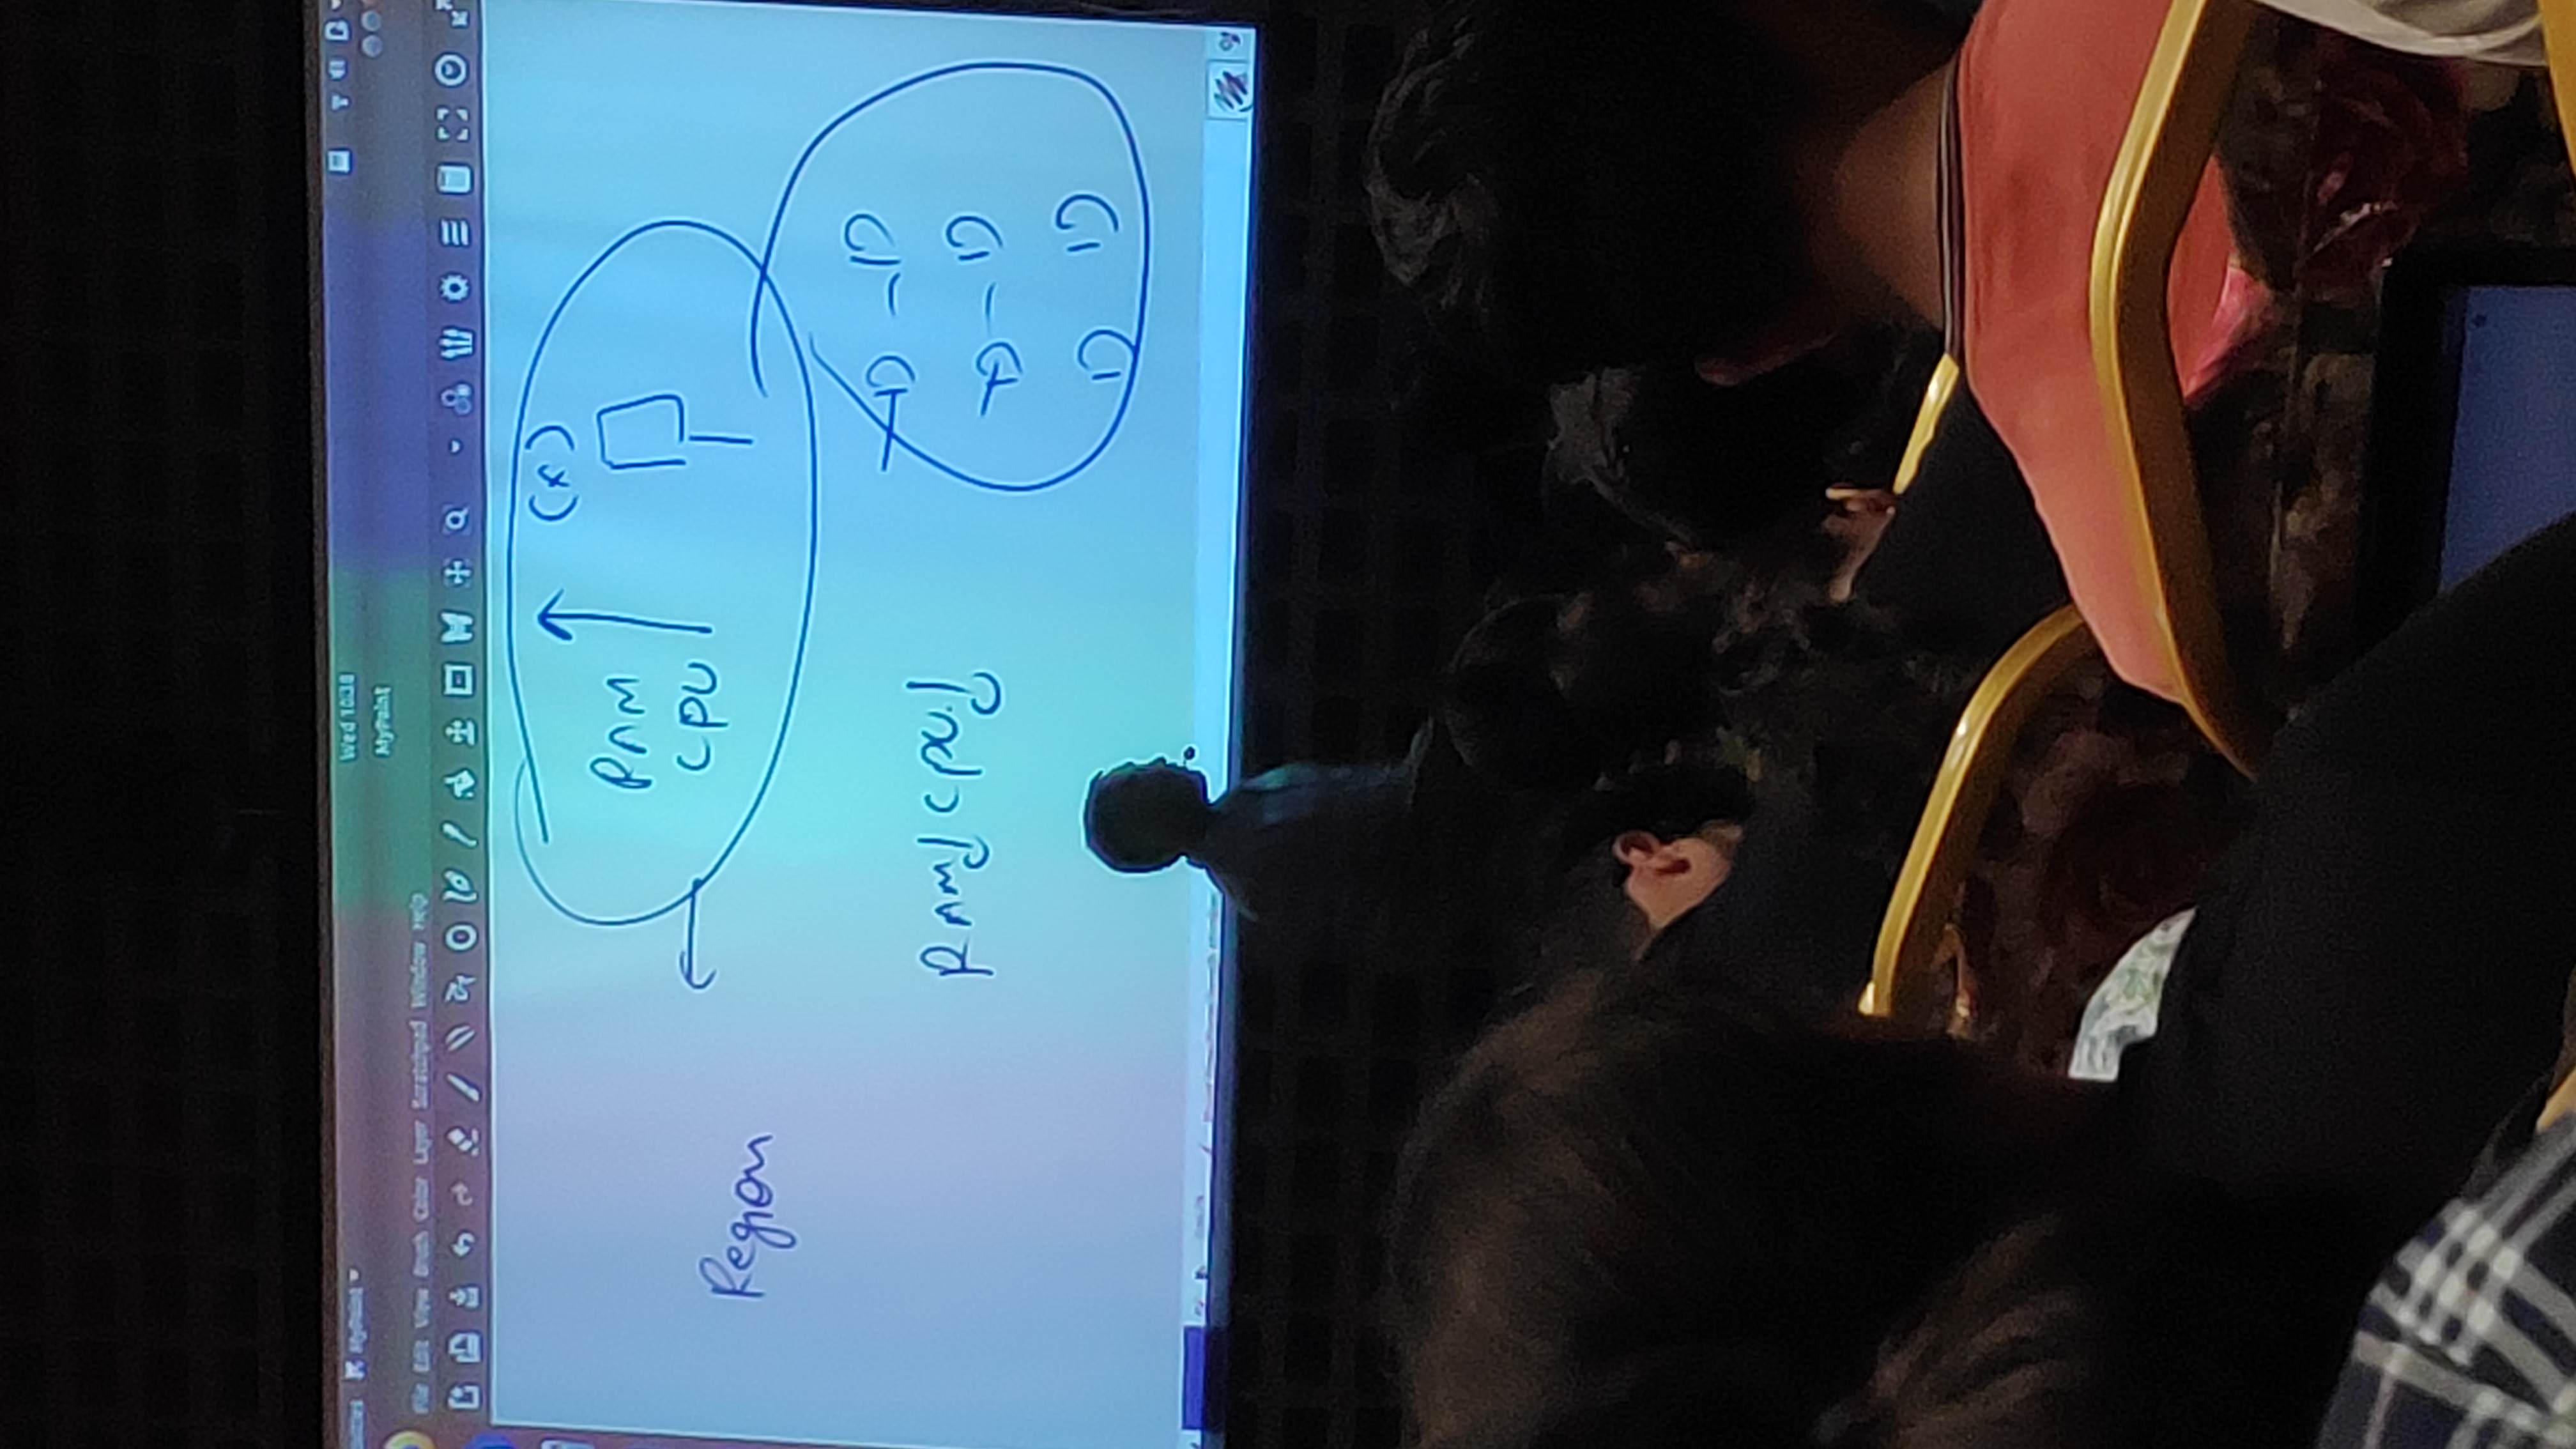 MyPaint
Wed 10:38
MyPaint
File Edit View Brush Color Layer Scratchpad Window Help
(x)
RAM
CPU
Region
D D
RAM CPU
D D
D D